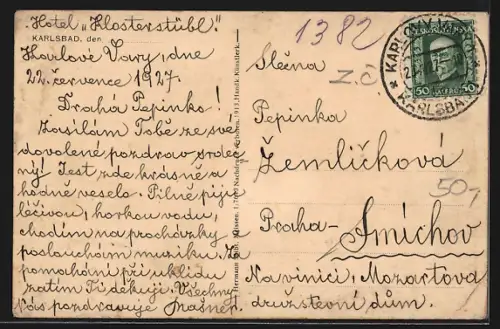 Hotel „Klosterstübl."
KARLSBAD, den
Karlove Vary, dne
22. července 1927.
Drahá Pepinko!
Zasílám Tobě ze své
dovolené pozdrav srdeč-
ný! Jest zde krásně a
hodně veselo. Pilně piji
léčivou, horkou vodu,
chodím na procházky a
poslouchám muziku. Za
pomáhání při úklidu
zatím Ti děkuji. Všechny
Vás pozdravuje
1382
Z.Č
KARLSBAD
50 50
Slečna
Pepinka
Žemličková
50,
Praha-Smíchov
Na vinici, Mozartova
družstevní dům.